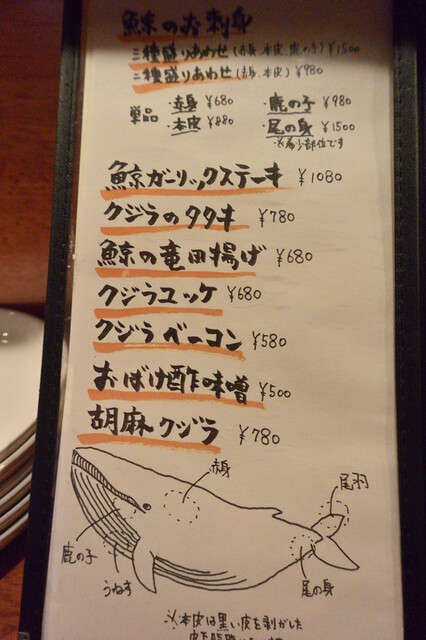 鯨のお刺身
三種盛りあわせ(赤身、本皮、鹿の子) ¥1500
二種盛りあわせ(赤身、本皮) ¥980
単品 ・赤身 ¥680 ・鹿の子 ¥980
・本皮 ¥880 ・尾の身 ¥1500
※希少部位です
鯨ガーリックステーキ ¥1080
クジラのタタキ ¥780
鯨の竜田揚げ ¥680
クジラユッケ ¥680
クジラベーコン ¥580
おばけ酢味噌 ¥500
胡麻クジラ ¥780
赤身
尾羽
鹿の子
うねす
尾の身
※本皮は黒い皮を剥がした